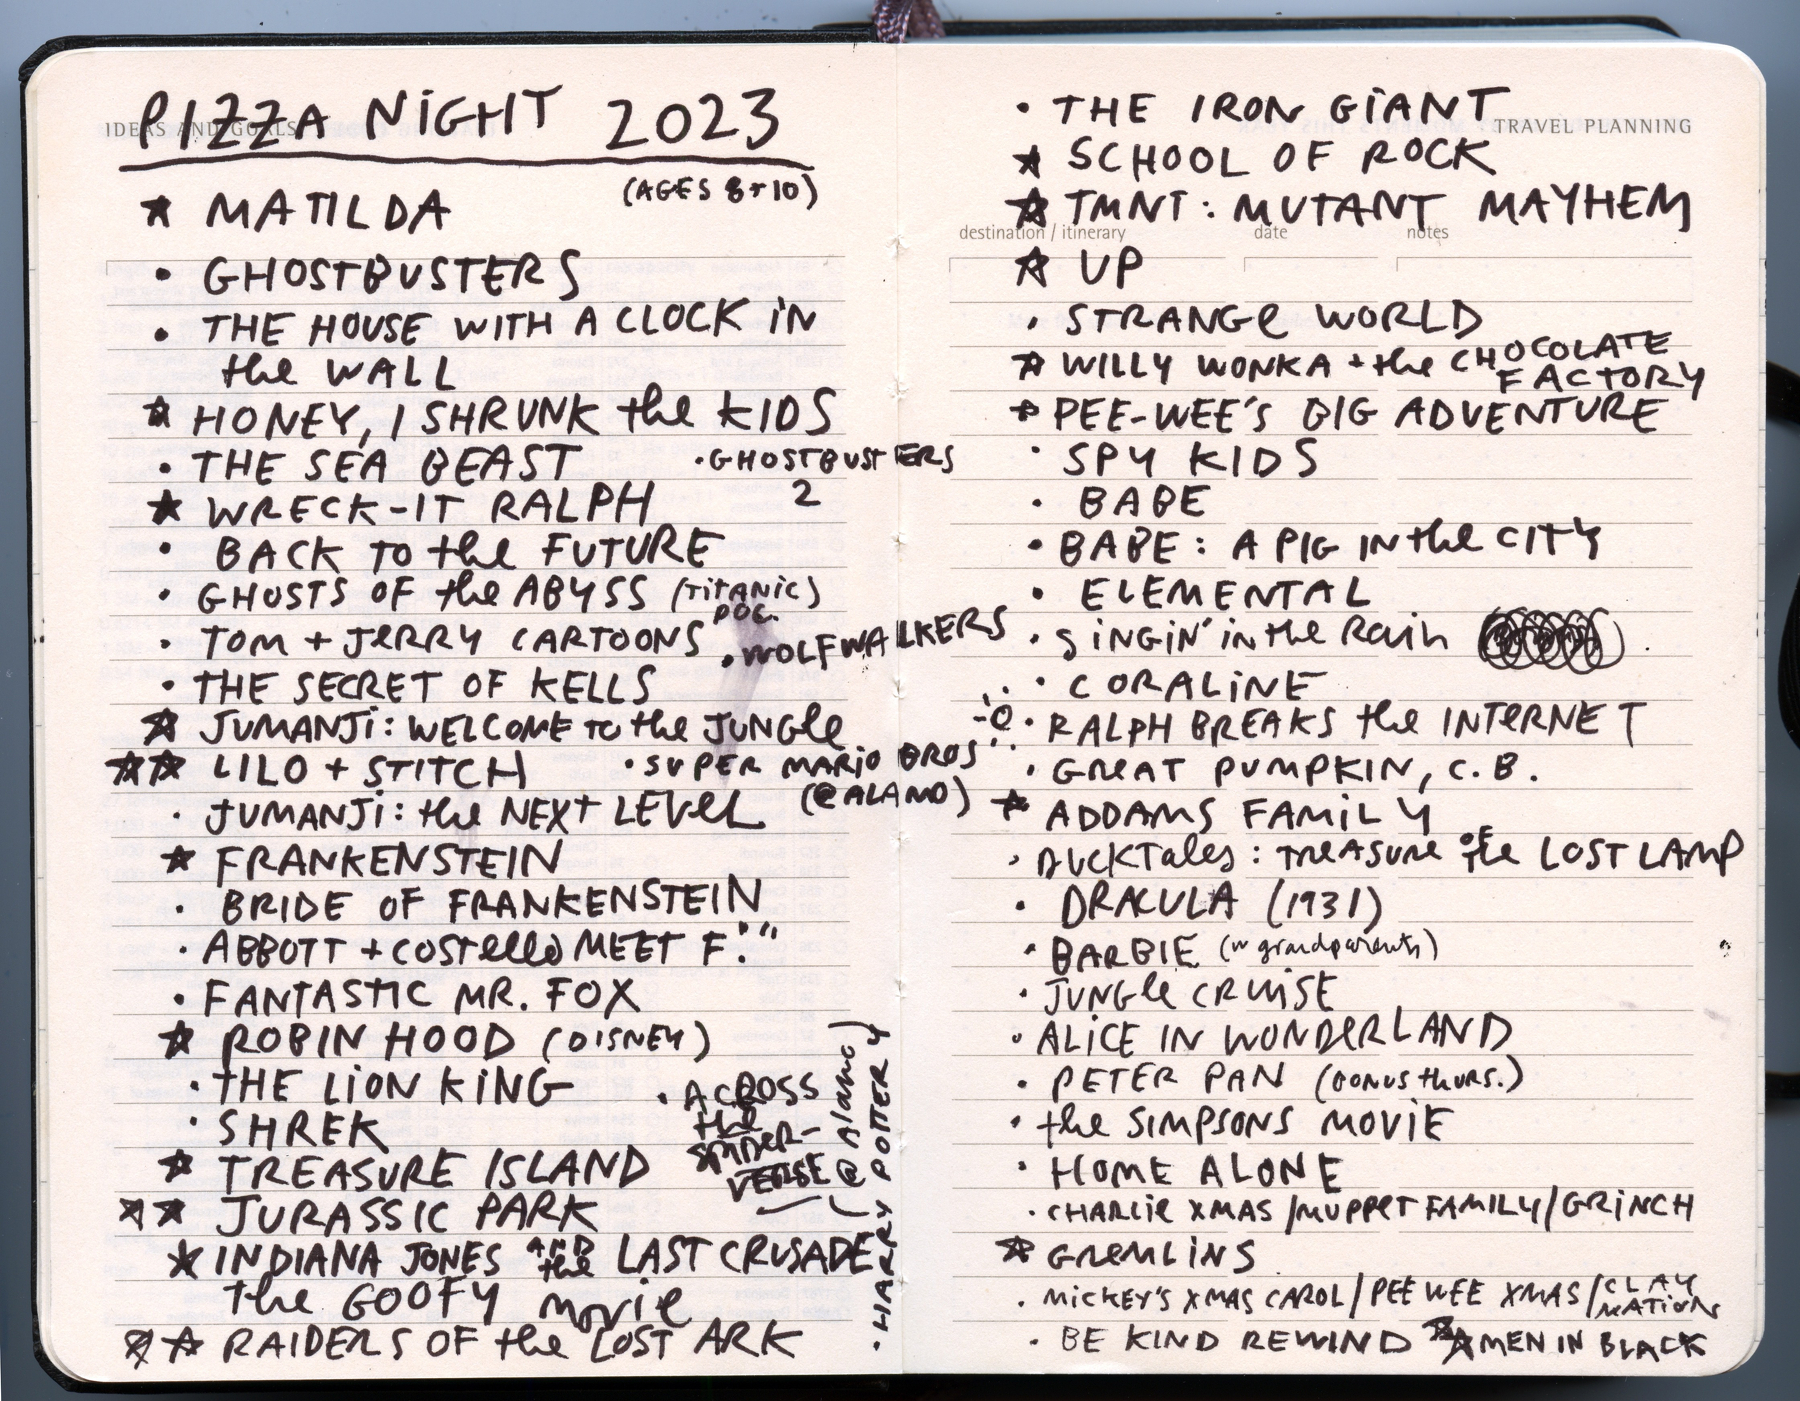 IDEAS AND GOALS
PIZZA NIGHT 2023
(AGES 8+10)
★ MATILDA
• GHOSTBUSTERS
• THE HOUSE WITH A CLOCK IN
the WALL
★ HONEY, I SHRUNK the KIDS
• THE SEA BEAST
• GHOSTBUSTERS
2
★ WRECK-IT RALPH
• BACK TO the FUTURE
• GHOSTS OF the ABYSS (TITANIC)
DOC.
• TOM + JERRY CARTOONS
• WOLFWALKERS
• THE SECRET OF KELLS
★ JUMANJI: WELCOME TO the JUNGLE
★★ LILO + STITCH
• SUPER MARIO BROS
(@ALAMO)
• JUMANJI: the NEXT LEVEL
★ FRANKENSTEIN
• BRIDE OF FRANKENSTEIN
• ABBOTT + COSTELLO MEET F. " "
• FANTASTIC MR. FOX
★ ROBIN HOOD (DISNEY)
• THE LION KING
• ACROSS
the
SPIDER-
VERSE
(@ Alamo)
• SHREK
★ TREASURE ISLAND
★★ JURASSIC PARK
★ INDIANA JONES AND the LAST CRUSADE
the GOOFY movie
★★ RAIDERS OF the LOST ARK
• HARRY POTTER 4
TRAVEL PLANNING
• THE IRON GIANT
★ SCHOOL OF ROCK
★ TMNT: MUTANT MAYHEM
destination / itinerary date notes
★ UP
• STRANGE WORLD
★ WILLY WONKA + the CHOCOLATE
FACTORY
★ PEE-WEE'S BIG ADVENTURE
• SPY KIDS
• BABE
• BABE: A PIG IN the CITY
• ELEMENTAL
• SINGIN' in the Rain
• CORALINE
• RALPH BREAKS the INTERNET
• GREAT PUMPKIN, C.B.
★ ADDAMS FAMILY
• DUCKTALES: TREASURE OF the LOST LAMP
• DRACULA (1931)
• BARBIE (w grandparents)
• JUNGLE CRUISE
• ALICE IN WONDERLAND
• PETER PAN (BONUS thurs.)
• the SIMPSONS MOVIE
• HOME ALONE
• CHARLIE XMAS / MUPPET FAMILY / GRINCH
★ GREMLINS
• MICKEY'S XMAS CAROL / PEE WEE XMAS / CLAY
MATION
• BE KIND REWIND ★★ MEN IN BLACK